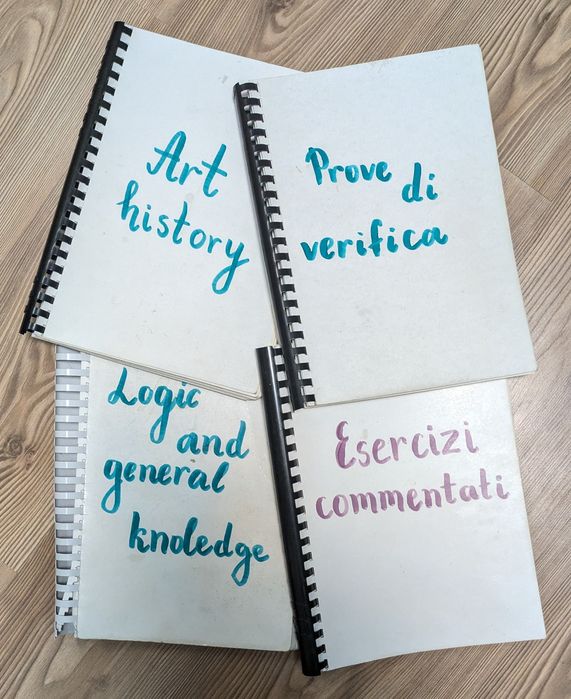 Art
history
Prove
di
verifica
Logic
and
general
knoledge
Esercizi
commentati